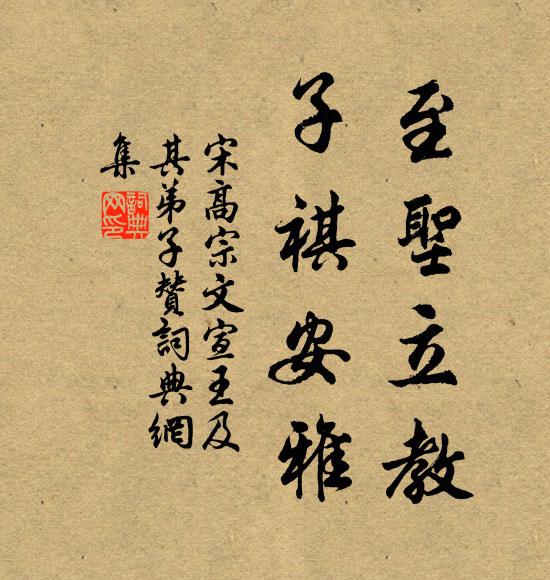 至聖立教
子祺安雅
宋高宗文宣王及
其弟子贊詞典網
集
詞典網印